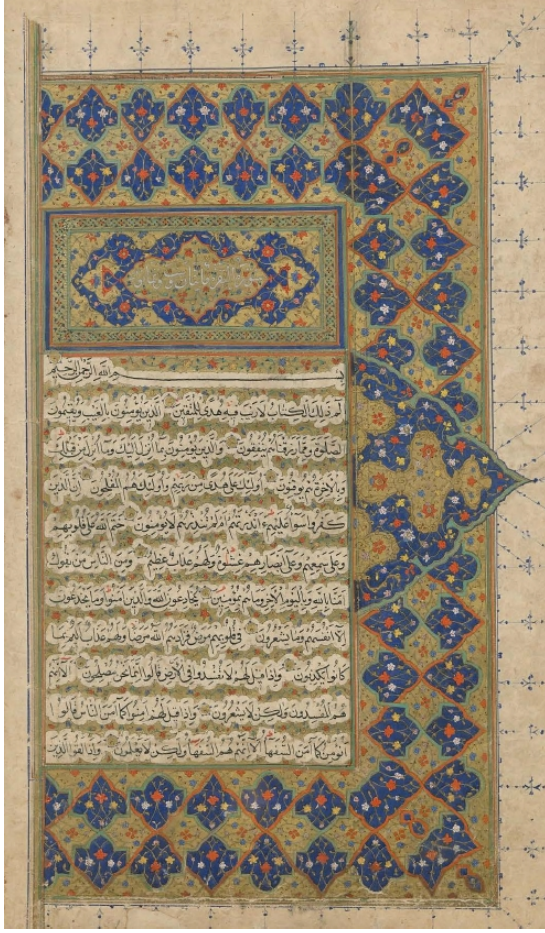 بسم الله الرحمن الرحيم
الم ذلك الكتاب لا ريب فيه هدى للمتقين الذين يؤمنون بالغيب ويقيمون
الصلوة ومما رزقناهم ينفقون والذين يؤمنون بما انزل اليك وما انزل من قبلك
وبالاخرة هم يوقنون اولئك على هدى من ربهم واولئك هم المفلحون ان الذين
كفروا سواء عليهم ءانذرتهم ام لم تنذرهم لا يؤمنون ختم الله على قلوبهم
وعلى سمعهم وعلى ابصارهم غشوة ولهم عذاب عظيم ومن الناس من يقول
امنا بالله وباليوم الاخر وما هم بمؤمنين يخادعون الله والذين امنوا وما يخدعون
الا انفسهم وما يشعرون في قلوبهم مرض فزادهم الله مرضا ولهم عذاب اليم بما
كانوا يكذبون واذا قيل لهم لا تفسدوا في الارض قالوا انما نحن مصلحون الا انهم
هم المفسدون ولكن لا يشعرون واذا قيل لهم امنوا كما امن الناس قالوا ا
نؤمن كما امن السفهاء الا انهم هم السفهاء ولكن لا يعلمون واذا لقوا الذين